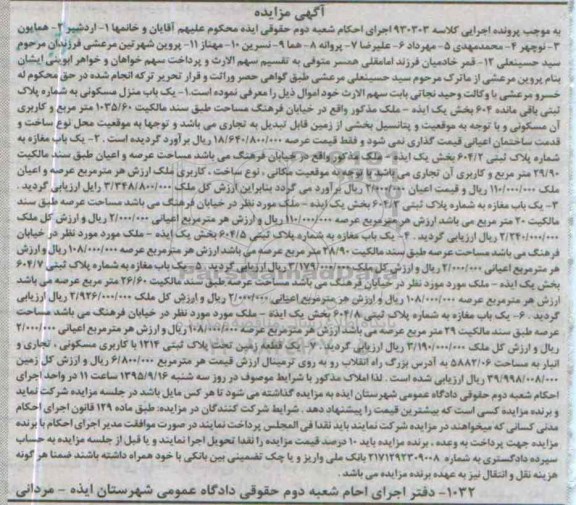 آگهی مزایده
به موجب پرونده اجرایی کلاسه ۹۳۰۳۰۳ اجرای احکام شعبه دوم حقوقی ایذه محکوم علیهم آقایان و خانمها ۱- اردشیر ۲- همایون
۳- نوچهر ۴- محمدمهدی ۵- مهرداد ۶- علیرضا ۷- پروانه ۸- هما ۹- نسرین ۱۰- مهناز ۱۱- پروین شهرتین مرعشی فرزندان مرحوم
سید حسینعلی ۱۲- قمر خادمیان فرزند امامقلی همسر متوفی به تقسیم سهم الارث و پرداخت سهم خواهان و خواهر ابوینی ایشان
بنام پروین مرعشی از ماترک مرحوم سید حسینعلی مرعشی طبق گواهی حصر وراثت و قرار تحریر ترکه انجام شده در حق محکوم له
خسرو مرعشی با وکالت وحید نجاتی بابت سهم الارث خود اموال ذیل را معرفی نموده است. ۱- یک باب منزل مسکونی به شماره پلاک
ثبتی باقی مانده ۶۰۴ بخش یک ایذه - ملک مذکور واقع در خیابان فرهنگ مساحت طبق سند مالکیت ۱۰۳۵/۶۰ متر مربع و کاربری
آن مسکونی و با توجه به موقعیت و پتانسیل بخشی از زمین قابل تبدیل به تجاری می باشد و توجها به موقعیت محل نوع ساخت و
قدمت ساختمان اعیانی قیمت گذاری نمی شود و فقط قیمت عرصه ۱۸/۶۴۰/۸۰۰/۰۰۰ ریال برآورد گردیده است . ۲- یک باب مغازه به
شماره پلاک ثبتی ۶۰۴/۲ بخش یک ایذه - ملک مذکور واقع در خیابان فرهنگ می باشد مساحت عرصه و اعیان طبق سند مالکیت
۲۹/۹۰ متر مربع و کاربری آن تجاری می باشد با توجه به موقعیت مکانی ، نوع ساخت ، کاربری ملک ارزش هر مترمربع عرصه و اعیان
ملک ۱۱۰/۰۰۰/۰۰۰ ریال و قیمت اعیان ۲/۰۰۰/۰۰۰ ریال برآورد می گردد بنابراین ارزش کل ملک ۳/۳۴۸/۸۰۰/۰۰۰ رایل ارزیابی گردید .
۳- یک باب مغازه به شماره پلاک ثبتی ۶۰۴/۳ بخش یک ایذه - ملک مورد نظر در خیابان فرهنگ می باشد مساحت عرصه طبق سند
مالکیت ۲۰ متر مربع می باشد ارزش هر مترمربع عرصه ۱۱۰/۰۰۰/۰۰۰ ریال و ارزش هر مترمربع اعیانی ۲/۰۰۰/۰۰۰ ریال و ارزش کل ملک
۲/۲۴۰/۰۰۰/۰۰۰ ریال ارزیابی گردید . ۴- یک باب مغازه به شماره پلاک ثبتی ۶۰۴/۵ بخش یک ایذه - ملک مورد مورد نظر در خیابان
فرهنگ می باشد مساحت عرصه طبق سند مالکیت ۲۸/۹۰ متر مربع عرصه می باشد ارزش هر مترمربع عرصه ۱۰۸/۰۰۰/۰۰۰ ریال و ارزش
هر مترمربع اعیانی ۲/۰۰۰/۰۰۰ ریال و ارزش کل ملک ریال ارزیابی گردید . ۵- یک باب مغازه به شماره پلاک ثبتی ۶۰۴/۷
بخش یک ایذه - ملک مورد مورد نظر در خیابان فرهنگ می باشد مساحت عرصه طبق سند مالکیت ۲۶/۶۰ متر مربع عرصه می باشد
ارزش هر مترمربع عرصه ۱۰۸/۰۰۰/۰۰۰ ریال و ارزش هر مترمربع اعیانی ۲/۰۰۰/۰۰۰ ریال و ارزش کل ملک ۲/۹۲۶/۰۰۰/۰۰۰ ریال ارزیابی
گردید . ۶- یک باب مغازه به شماره پلاک ثبتی ۶۰۴/۸ بخش یک ایذه - ملک مورد مورد نظر در خیابان فرهنگ می باشد مساحت
عرصه طبق سند مالکیت ۲۹ متر مربع عرصه می باشد ارزش هر مترمربع عرصه ۱۰۸/۰۰۰/۰۰۰ ریال و ارزش هر مترمربع اعیانی ۲/۰۰۰/۰۰۰
ریال و ارزش کل ملک ۳/۱۹۰/۰۰۰/۰۰۰ ریال ارزیابی گردید. ۷- یک قطعه زمین تحت پلاک ثبتی ۱۲۱۴ با کاربری مسکونی ، تجاری و
انبار به مساحت ۵۸۸۲/۰۶ به آدرس بزرگ راه انقلاب رو به روی ترمینال ارزش قیمت هر مترمربع ۶/۸۰۰/۰۰۰ ریال و ارزش کل زمین
۳۹/۹۹۸/۰۰۸/۰۰۰ ریال ارزیابی شده است . لذا املاک مذکور با شرایط موصوف در روز سه شنبه ۱۳۹۵/۹/۱۶ ساعت ۱۱ در واحد اجرای
احکام شعبه دوم حقوقی دادگاه عمومی شهرستان ایذه به مزایده گذاشته می شود تا هر کس مایل باشد در جلسه مزایده شرکت نماید
و برنده مزایده کسی است که بیشترین قیمت را پیشنهاد دهد . شرایط شرکت کنندگان در مزایده: طبق ماده ۱۲۹ قانون اجرای احکام
مدنی کسانی که میخواهند در مزایده شرکت نمایند باید نقدا فی المجلس پرداخت نمایند در صورت موافقت مدیر اجرای احکام با برنده
مزایده جهت پرداخت به وعده ، برنده مزایده باید ۱۰ درصد قیمت مزایده را نقدا تحویل اجرا نمایند و یا قبل از جلسه مزایده به حساب
سپرده دادگستری به شماره ۲۱۷۱۲۹۲۳۰۹۰۰۸ بانک ملی واریز و یا چک تضمینی بین بانکی با خود همراه داشته باشند ضمنا هر گونه
هزینه نقل و انتقال نیز به عهده برنده مزایده می باشد .
۱۰۳۲- دفتر اجرای احام شعبه دوم حقوقی دادگاه عمومی شهرستان ایذه - مردانی